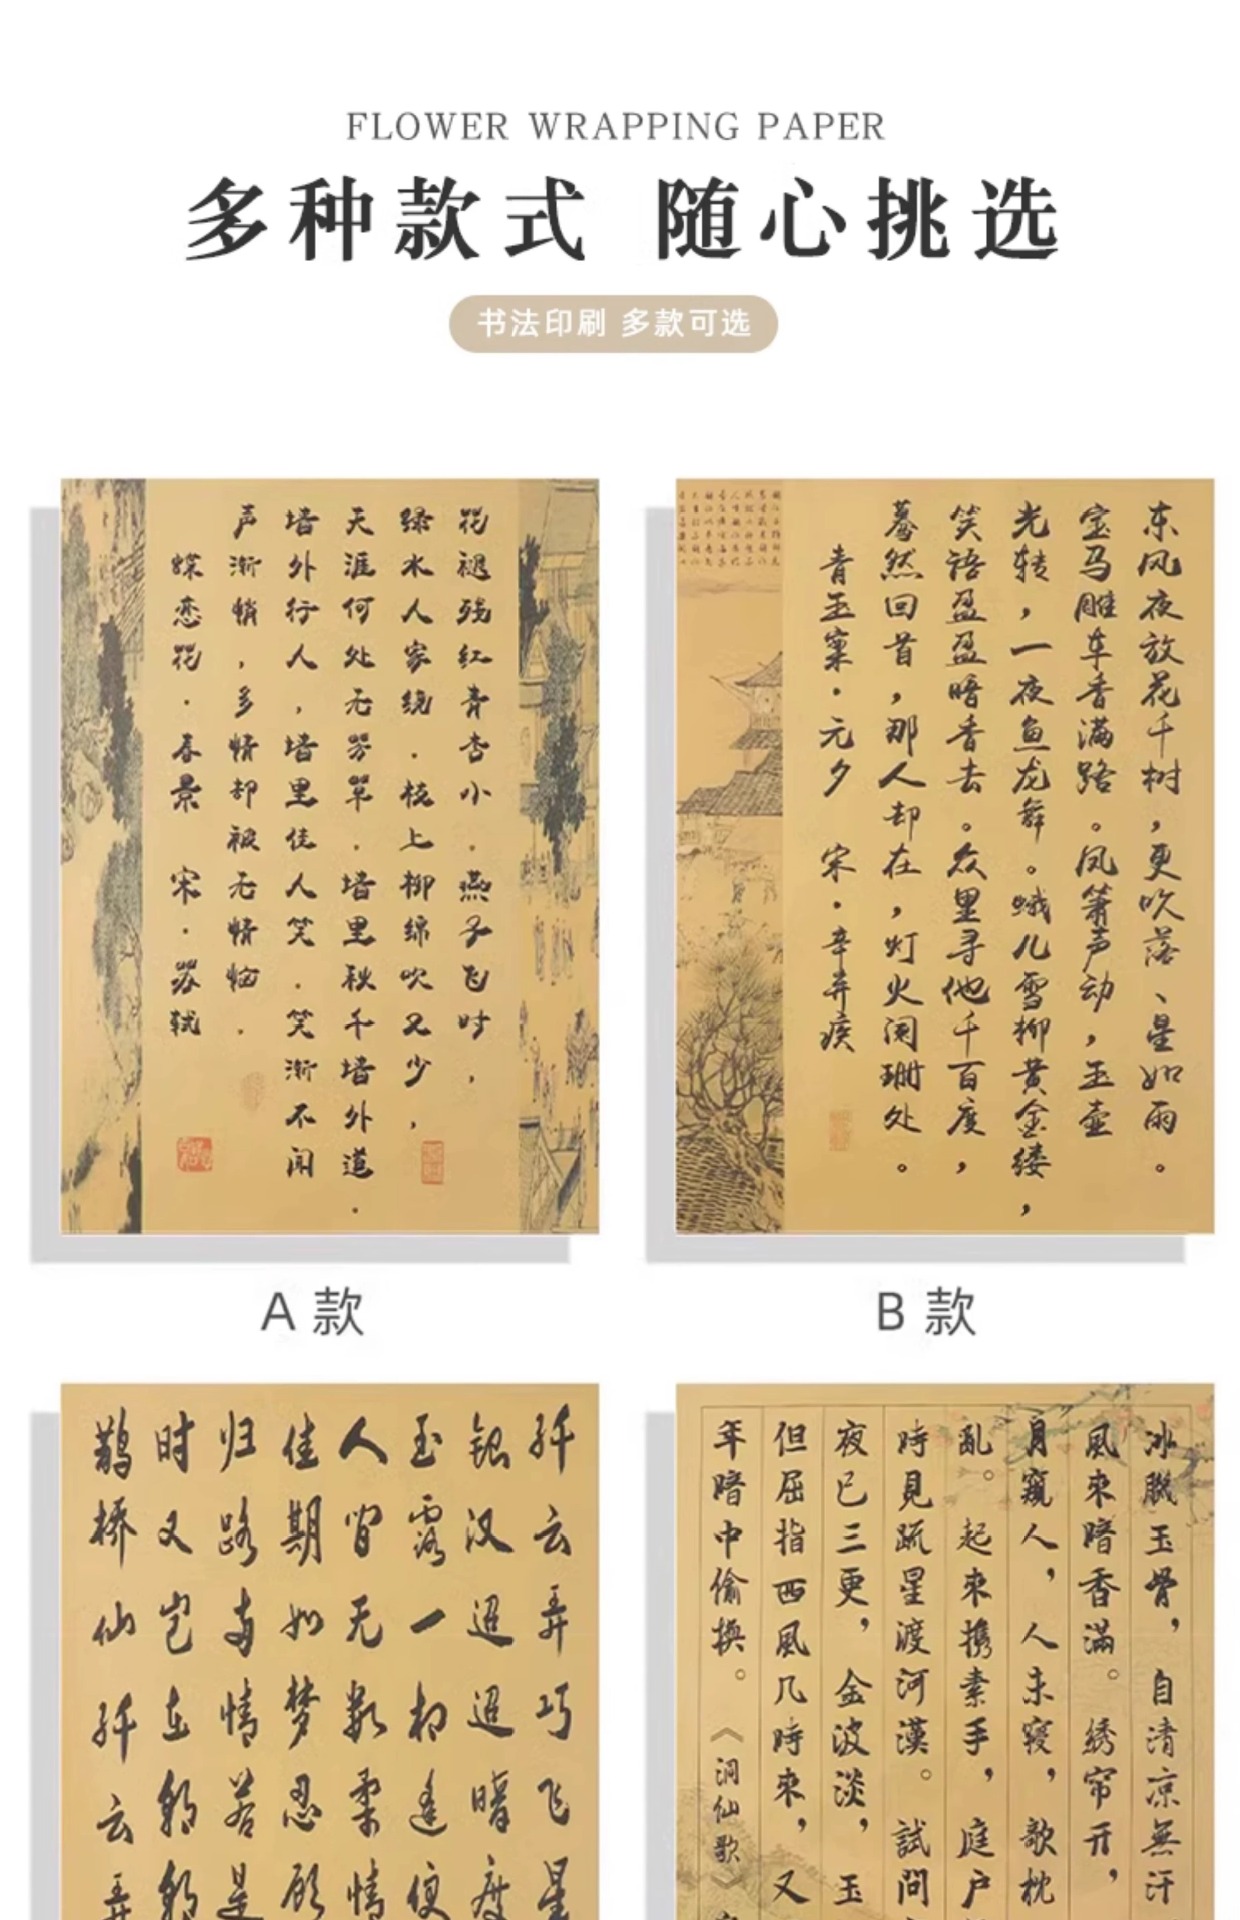 FLOWER WRAPPING PAPER
多种款式 随心挑选
书法印刷 多款可选
花褪残红青杏小。燕子飞时，
绿水人家绕.枝上柳绵吹又少，
天涯何处无芳草.墙里秋千墙外道.
墙外行人，墙里佳人笑.笑渐不闻
声渐悄，多情却被无情恼.
蝶恋花·春景 宋·苏轼
东风夜放花千树，更吹落、星如雨。
宝马雕车香满路。凤箫声动，玉壶
光转，一夜鱼龙舞。蛾儿雪柳黄金缕，
笑语盈盈暗香去。众里寻他千百度，
蓦然回首，那人却在，灯火阑珊处。
青玉案·元夕 宋·辛弃疾
A 款
B 款
纤云弄巧飞星
银汉迢迢暗度
玉露一相逢便
人间无数柔情
佳期如梦忍顾
归路两情若是
时又岂在朝朝
鹊桥仙纤云弄
冰肌玉骨，自清凉無汗
風來暗香滿。绣帘开，
月窺人，人未寝，欹枕
亂。起來攜素手，庭户
時見疏星渡河漢。試問
夜已三更，金波淡，玉
但屈指西風几時來，又
年暗中偷換。《洞仙歌》